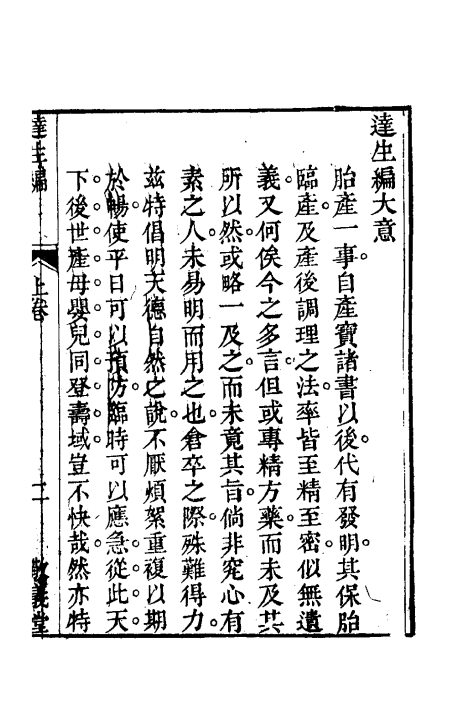 達生編大意
胎產一事自產寶諸書以後代有發明其保胎
臨產及產後調理之法率皆至精至密似無遺
義又何俟今之多言但或專精方藥而未及其
所以然或略一及之而未竟其旨倘非究心有
素之人未易明而用之也倉卒之際殊難得力
茲特倡明天德自然之說不厭煩絮重複以期
於暢使平日可以預防臨時可以應急從此天
下後世產母嬰兒同登壽域豈不快哉然亦特
達生編
上卷
敬義堂